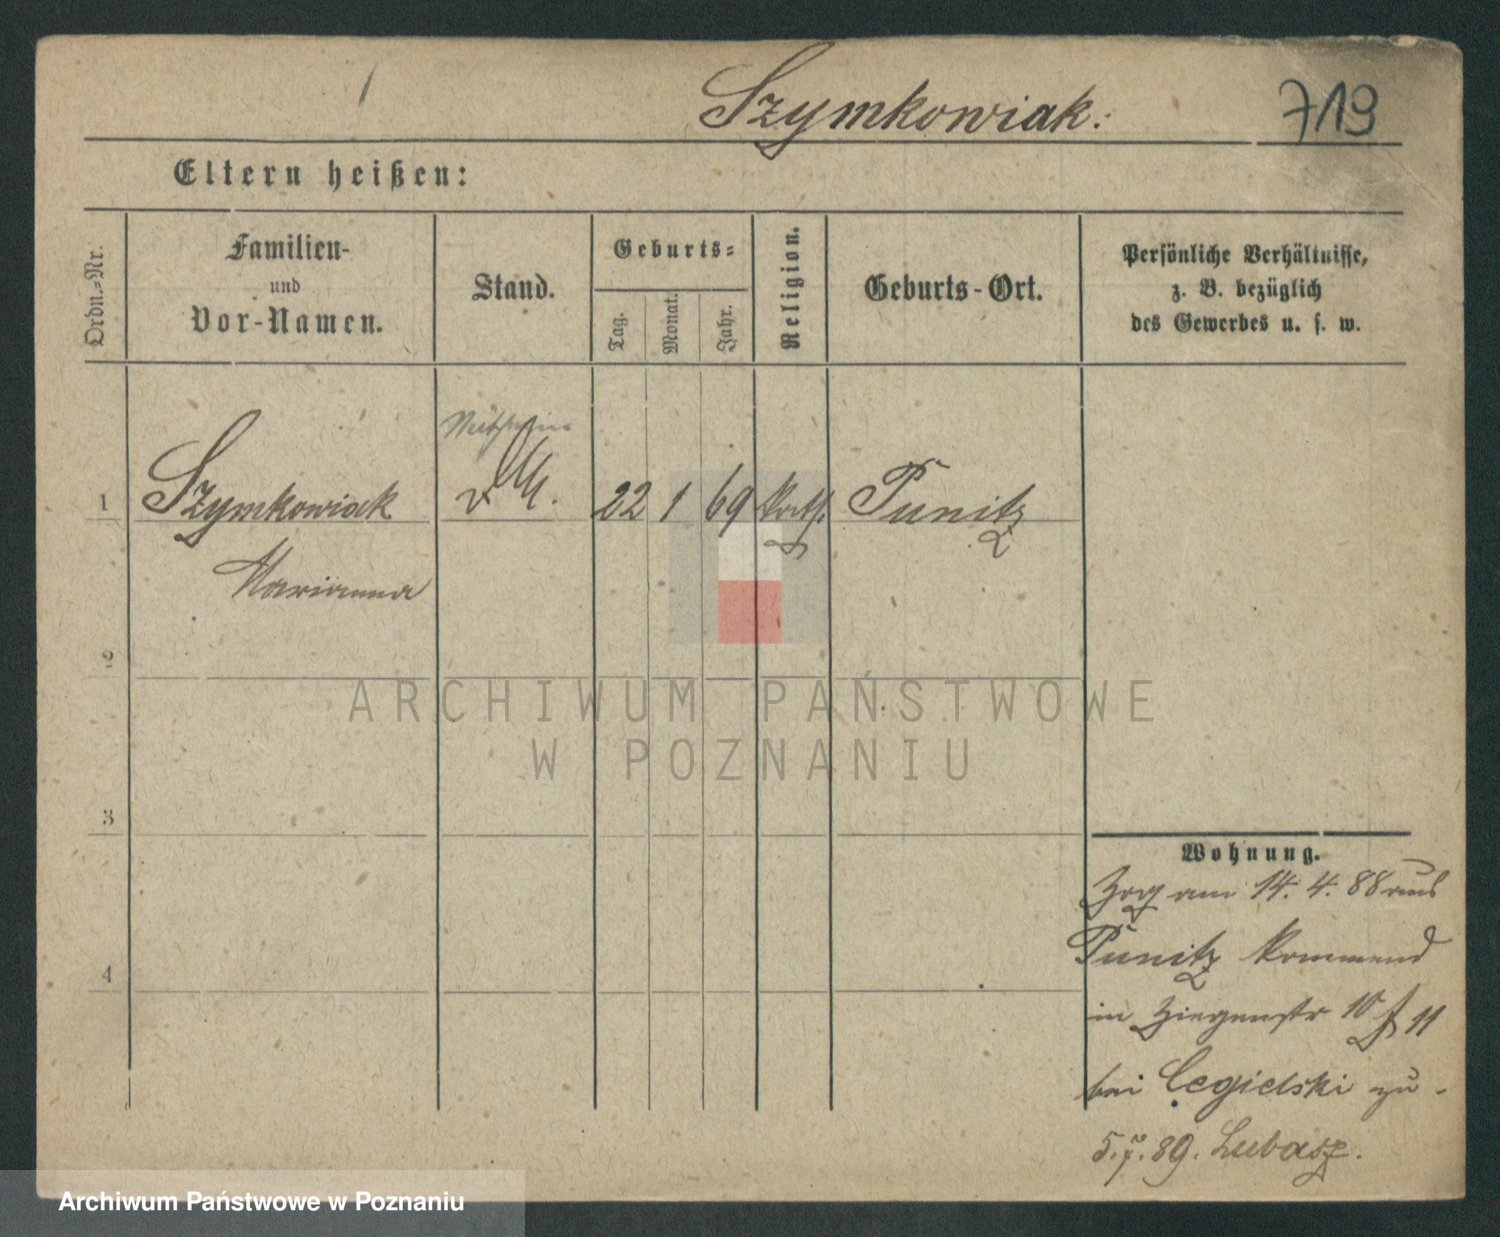 Szymkowiak.
719
Eltern heißen:
Ordn.-Nr.
Familien-
und
Vor-Namen.
Stand.
Geburts-
Tag.
Monat.
Jahr.
Religion.
Geburts-Ort.
Persönliche Verhältnisse,
z. B. bezüglich
des Gewerbes u. s. w.
1 Szymkowiak 22 1 69 kath. Punitz
Marianna
2
3
4
ARCHIWUM PAŃSTWOWE
W POZNANIU
Wohnung.
Zog am 14. 4. 88 aus
Punitz kommend
in Ziegenstr 10 f 11
bei Cegielski zu -
5.7.89. Lubasz.
Archiwum Państwowe w Poznaniu